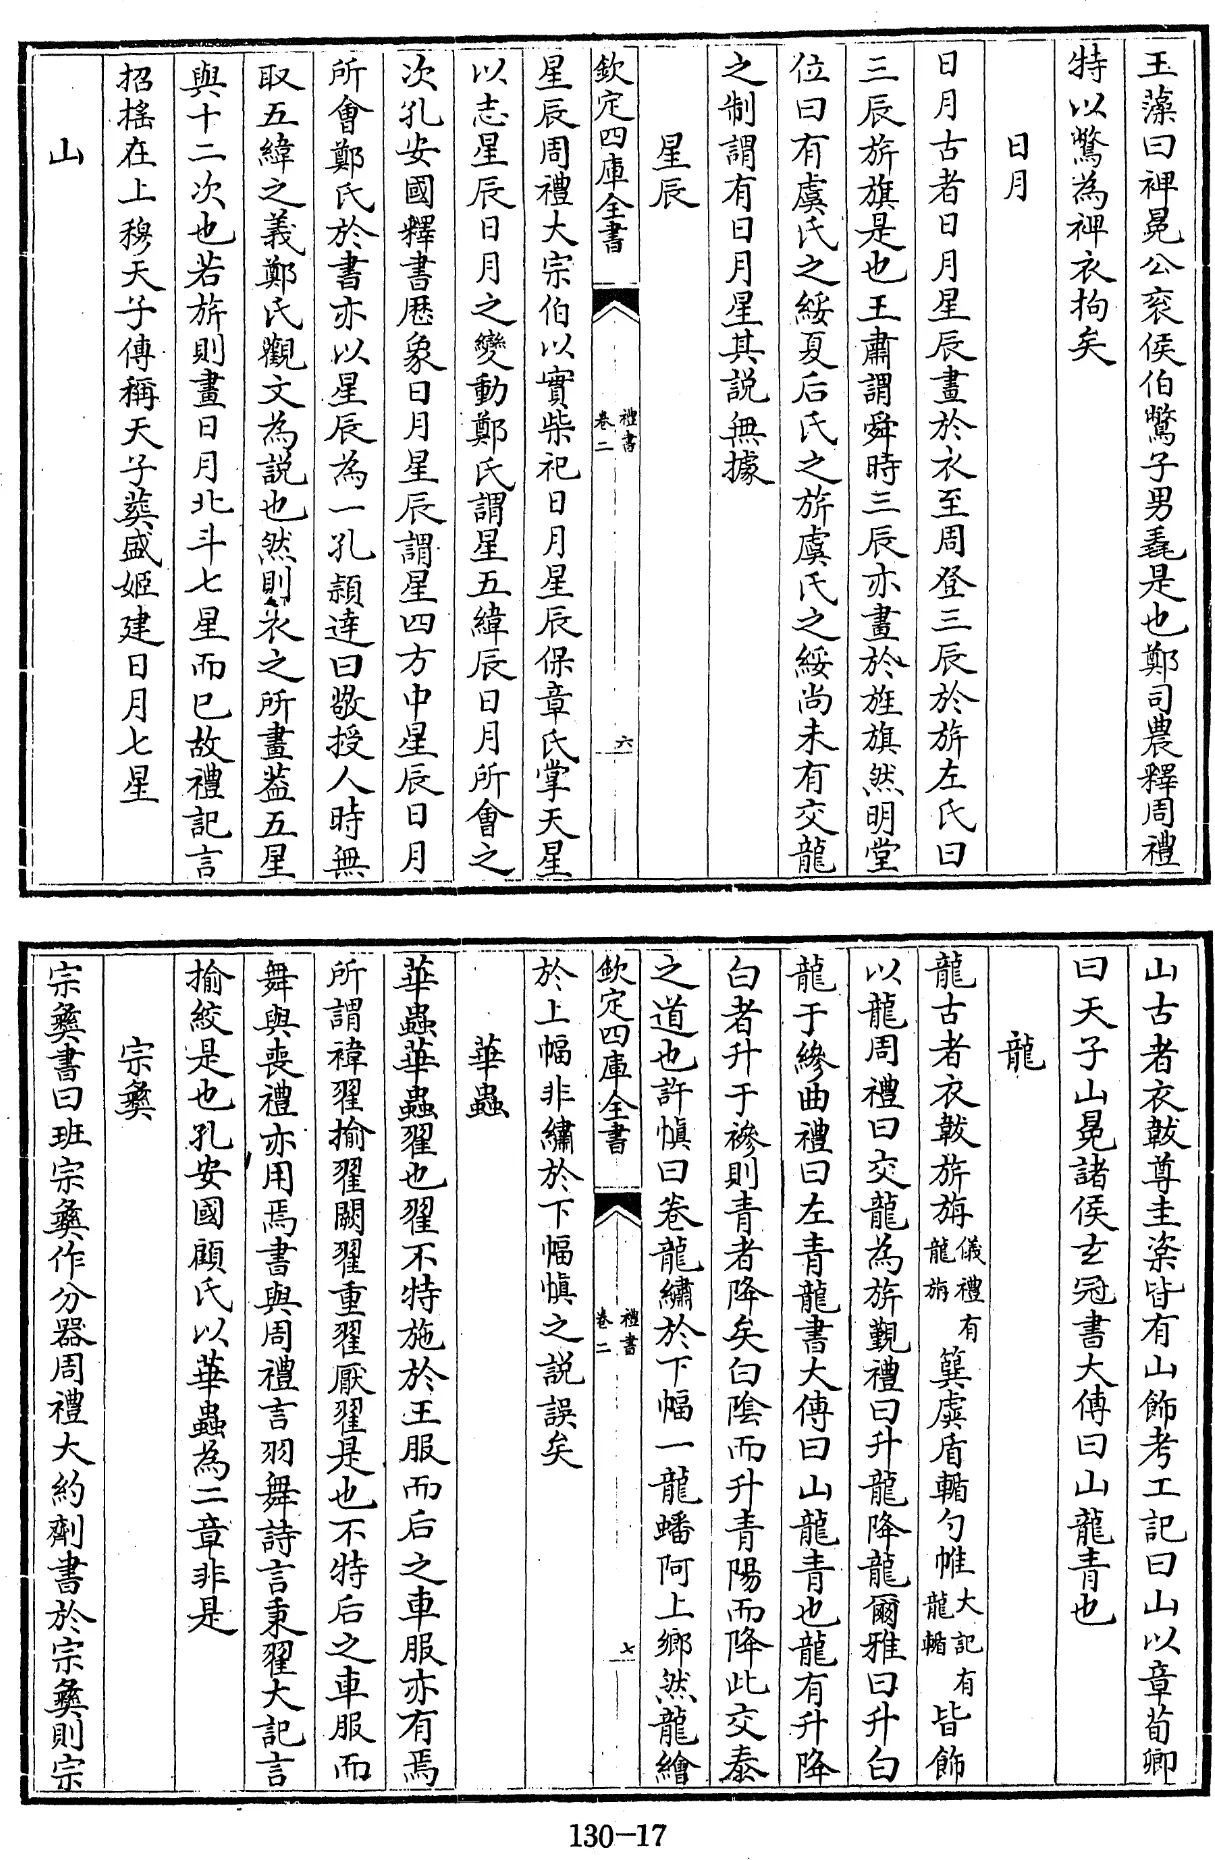 玉藻曰裨冕公衮侯伯鷩子男毳是也鄭司農釋周禮
特以鷩為裨衣拘矣
日月
日月古者日月星辰畫於衣至周登三辰於旂左氏曰
三辰旂旗是也王肅謂舜時三辰亦畫於旌旗然明堂
位曰有虞氏之綏夏后氏之旂虞氏之綏尚未有交龍
之制謂有日月星其説無據
星辰
欽定四庫全書
禮書
卷二
六
星辰周禮大宗伯以實柴祀日月星辰保章氏掌天星
以志星辰日月之變動鄭氏謂星五緯辰日月所會之
次孔安國釋書歴象日月星辰謂星四方中星辰日月
所會鄭氏於書亦以星辰為一孔頴達曰敬授人時無
取五緯之義鄭氏觀文為説也然則衣之所畫葢五星
與十二次也若旂則畫日月北斗七星而已故禮記言
招搖在上穆天子傳稱天子葬盛姬建日月七星
山
山古者衣韍尊圭楶皆有山飾考工記曰山以章荀卿
曰天子山冕諸侯玄冠書大傳曰山龍青也
龍
龍古者衣韍旂旃儀禮有龍旃簨虡盾輴勺帷大記有龍輴皆飾
以龍周禮曰交龍為旂覲禮曰升龍降龍爾雅曰升白
龍于縿曲禮曰左青龍書大傳曰山龍青也龍有升降
白者升于縿則青者降矣白陰而升青陽而降此交泰
之道也許慎曰卷龍繡於下幅一龍蟠阿上鄉然龍繪
欽定四庫全書
禮書
卷二
七
於上幅非繡於下幅慎之説誤矣
華蟲
華蟲華蟲翟也翟不特施於王服而后之車服亦有焉
所謂褘翟揄翟闕翟重翟厭翟是也不特后之車服而
舞與喪禮亦用焉書與周禮言羽舞詩言秉翟大記言
揄絞是也孔安國顧氏以華蟲為二章非是
宗彜
宗彜書曰班宗彜作分器周禮大約劑書於宗彜則宗
130-17